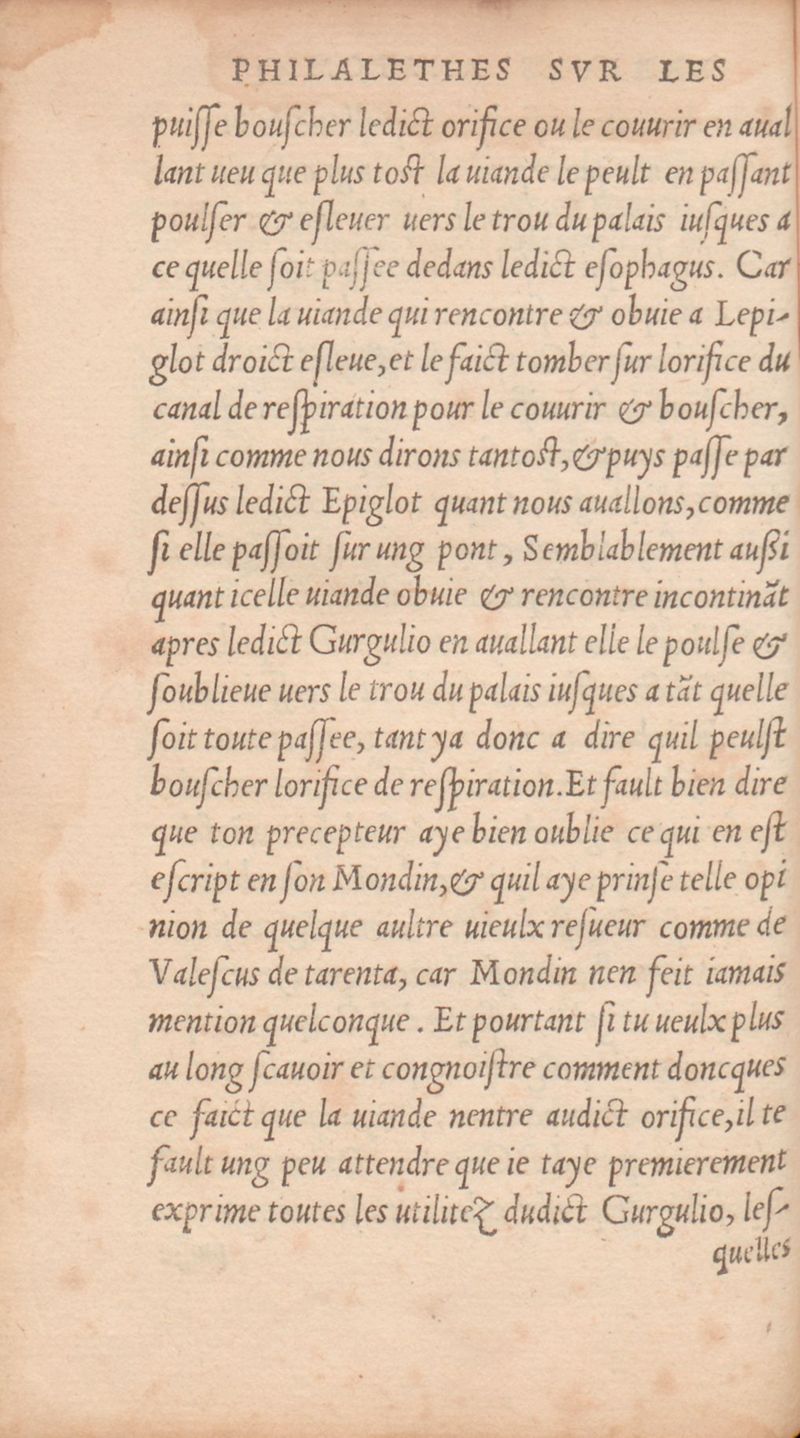 PHILALETHES SVR LES
puiſſe bouſcher ledict orifice ou le couurir en aual
lant ueu que plus toſt la uiande le peult en paſſant
poulſer & eſleuer uers le trou du palais iuſques a
ce quelle ſoit paſſee dedans ledict eſophagus. Car
ainſi que la uiande qui rencontre & obuie a Lepi-
glot droict eſleue, et le faict tomber ſur lorifice du
canal de reſpiration pour le couurir & bouſcher,
ainſi comme nous dirons tantoſt, & puys paſſe par
deſſus ledict Epiglot quant nous auallons, comme
ſi elle paſſoit ſur ung pont, Semblablement auſſi
quant icelle uiande obuie & rencontre incontināt
apres ledict Gurgulio en auallant elle le poulſe &
ſoublieue uers le trou du palais iuſques a tāt quelle
ſoit toute paſſee, tant ya donc a dire quil peulſt
bouſcher lorifice de reſpiration. Et fault bien dire
que ton precepteur aye bien oublie ce qui en eſt
eſcript en ſon Mondin, & quil aye prinſe telle opi
nion de quelque aultre uieulx reſueur comme de
Valeſcus de tarenta, car Mondin nen feit iamais
mention quelconque. Et pourtant ſi tu ueulx plus
au long ſcauoir et congnoiſtre comment doncques
ce faict que la uiande nentre audict orifice, il te
fault ung peu attendre que ie taye premierement
exprime toutes les utilitez dudict Gurgulio, leſ-
quelles